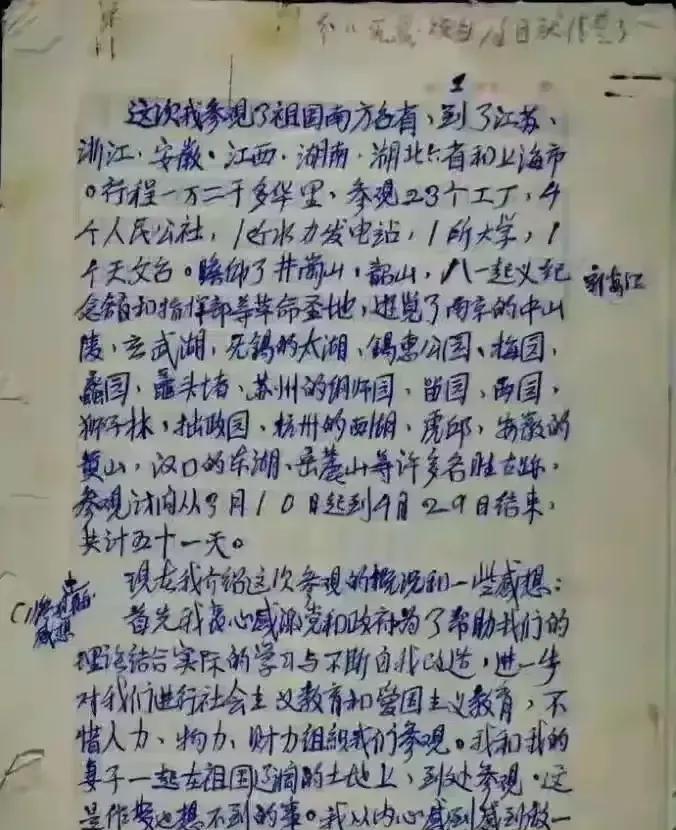 1
这次我参观了祖国南方各省，到了江苏、
浙江·安徽·江西·湖南·湖北六省和上海市
。行程一万二千多华里，参观23个工厂，4
个人民公社，1所水力发电站，1所大学，1
个天文台。瞻仰了井岗山，韶山，八一起义纪
念馆和指挥部等革命圣地，遊览了南京的中山
陵，玄武湖，无锡的太湖、锡惠公园、梅园，
蠡园，鼋头渚、苏州的网师园，留园，西园，
狮子林，拙政园，杭州的西湖，虎邱，安徽的
黄山，汉口的东湖、岳麓山等许多名胜古跡，
参观计自从3月10日起到4月29日结束，
共计五十一天。
现在我介绍这次参观的概况和一些感想：
感想
首先我衷心感谢党和政府为了帮助我们的
理论结合实际的学习与不断自我改造，进一步
对我们进行社会主义教育和爱国主义教育，不
惜人力、物力、财力组织我们参观。我和我的
妻子一起在祖国辽阔的土地上，到处参观·这
是作梦也想不到的事。我从内心感到感到做一